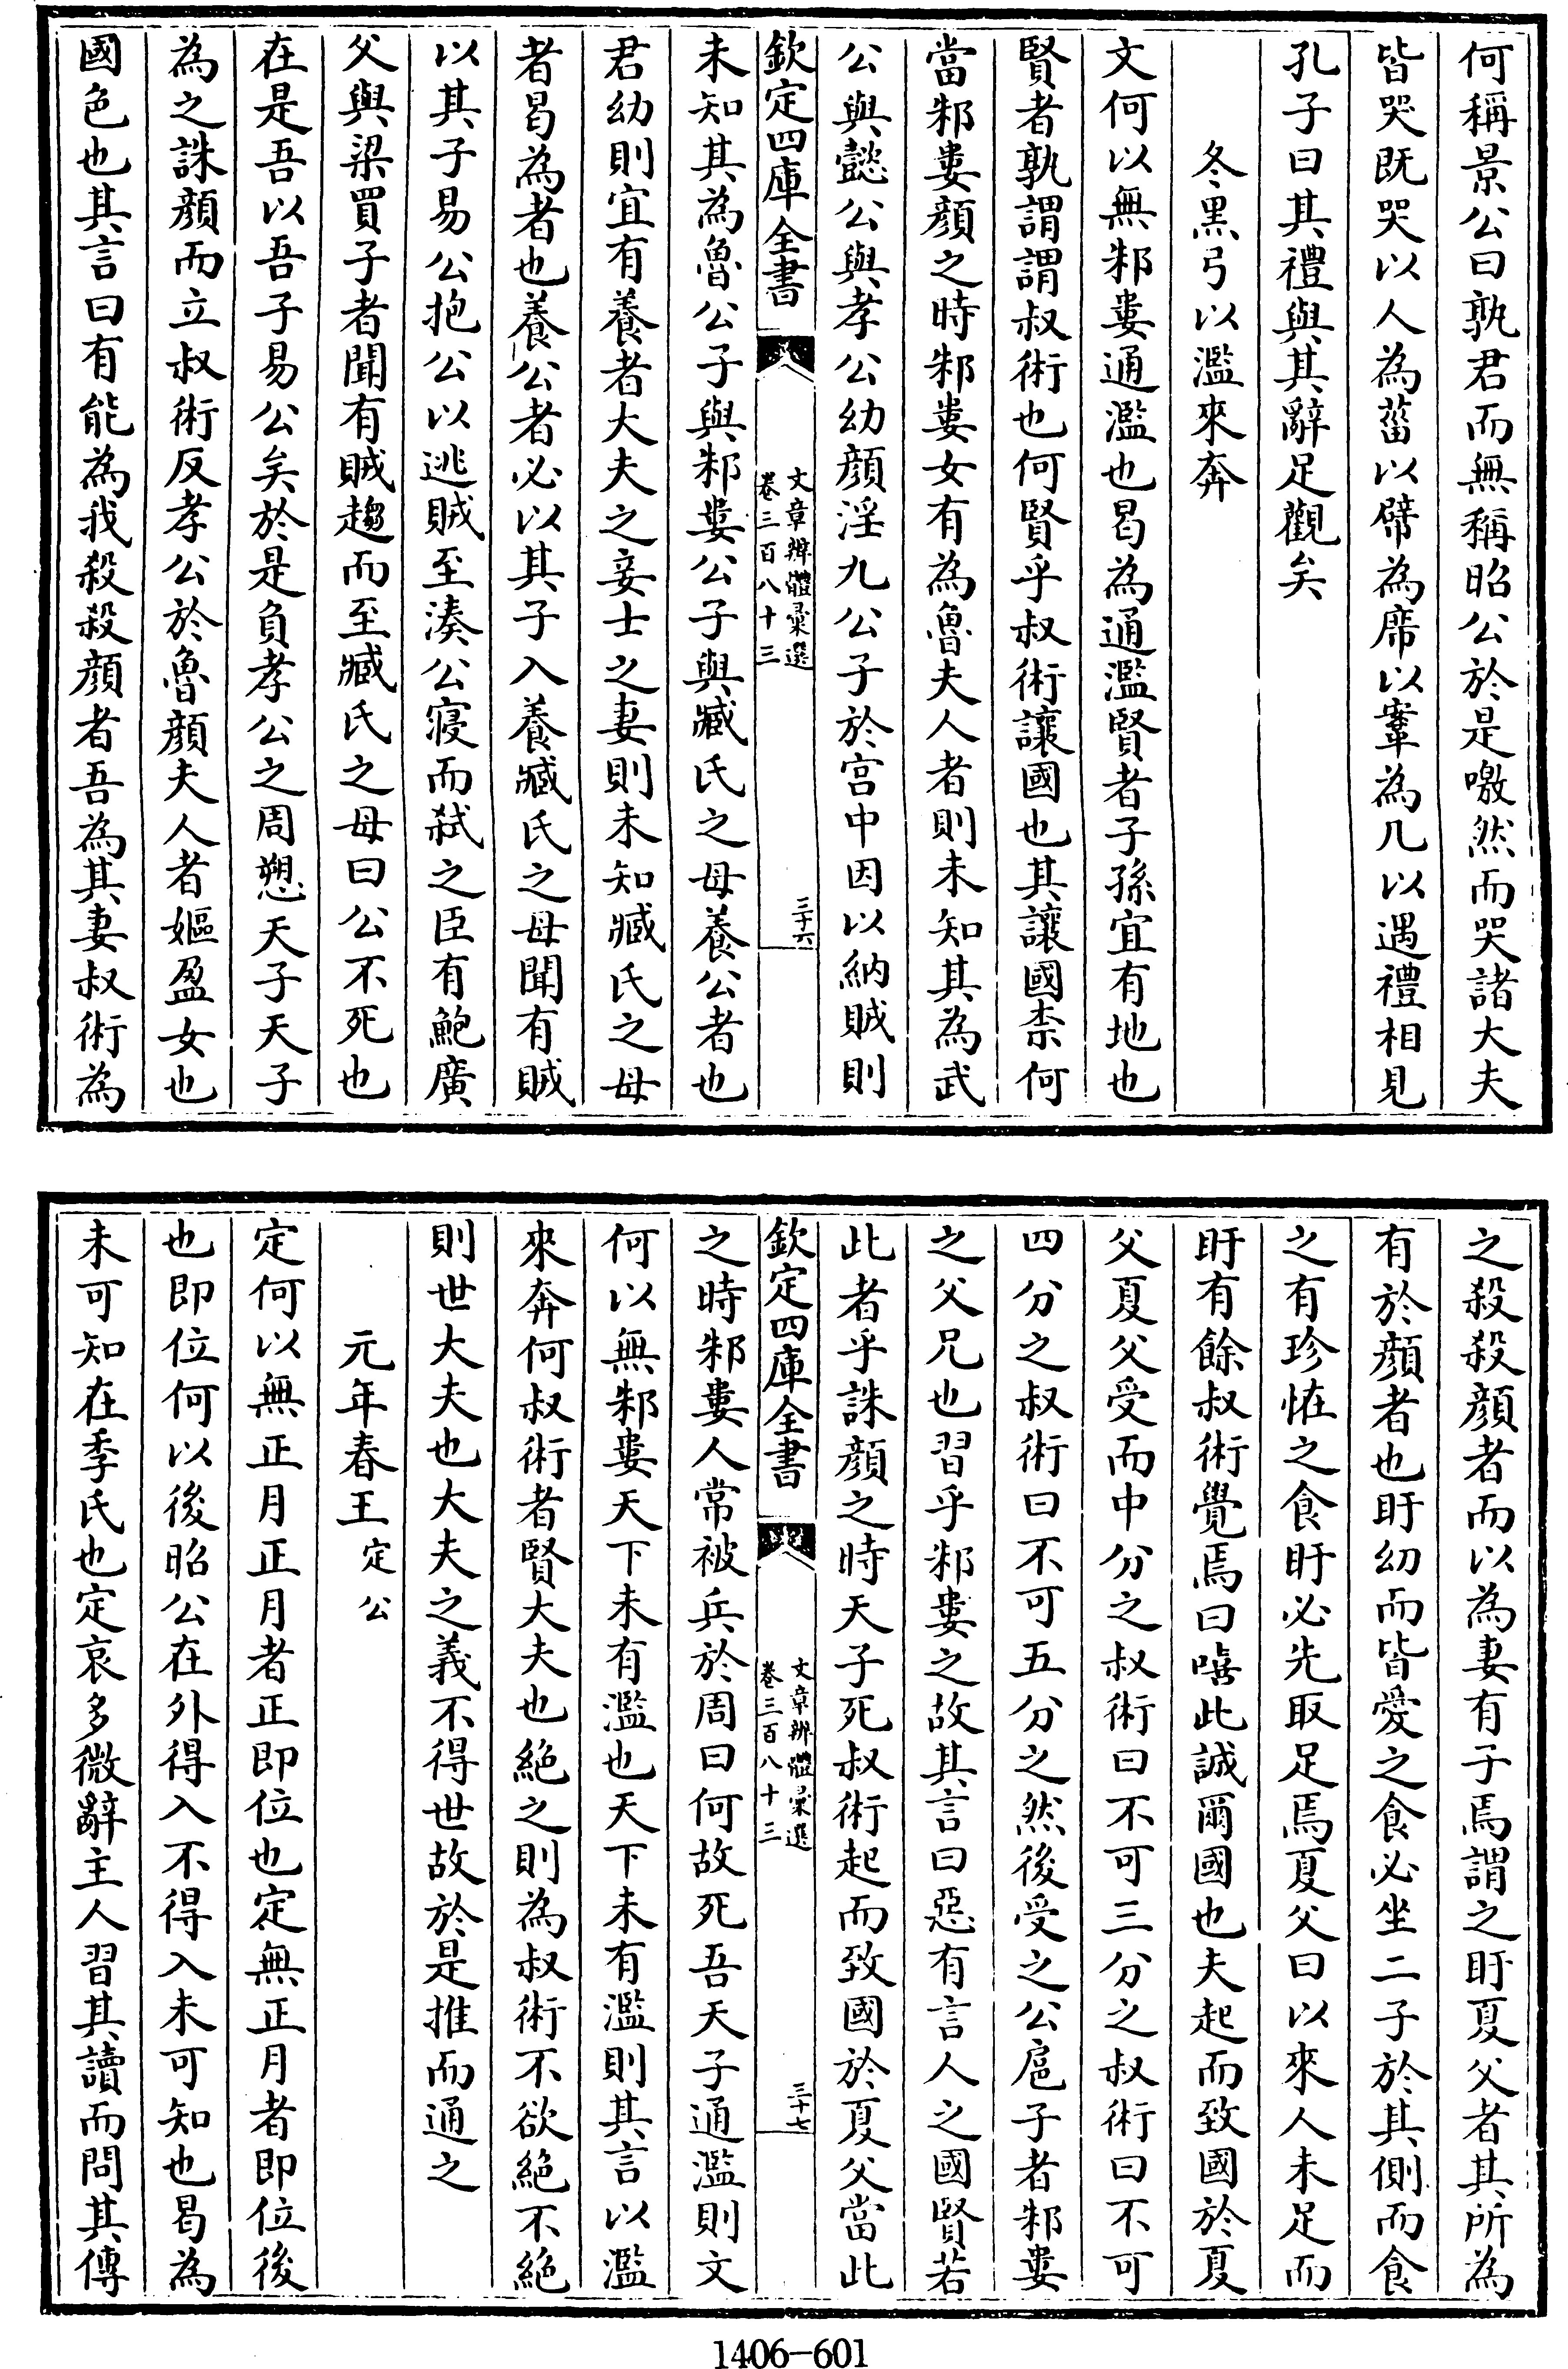 何稱景公曰孰君而無稱昭公於是噭然而哭諸大夫
皆哭既哭以人為菑以幦為席以鞌為几以遇禮相見
孔子曰其禮與其辭足觀矣
冬黑弓以濫來奔
文何以無邾婁通濫也曷為通濫賢者子孫宜有地也
賢者孰謂謂叔術也何賢乎叔術讓國也其讓國柰何
當邾婁顔之時邾婁女有為魯夫人者則未知其為武
公與懿公與孝公幼顔淫九公子於宫中因以納賊則
欽定四庫全書
文章辨體彚選
卷三百八十三
三十六
未知其為魯公子與邾婁公子與臧氏之母養公者也
君幼則宜有養者大夫之妾士之妻則未知臧氏之母
者曷為者也養公者必以其子入養臧氏之母聞有賊
以其子易公抱公以逃賊至湊公寢而弑之臣有鮑廣
父與梁買子者聞有賊趨而至臧氏之母曰公不死也
在是吾以吾子易公矣於是負孝公之周愬天子天子
為之誅顔而立叔術反孝公於魯顔夫人者嫗盈女也
國色也其言曰有能為我殺殺顔者吾為其妻叔術為
之殺殺顔者而以為妻有子焉謂之盱夏父者其所為
有於顔者也盱幼而皆愛之食必坐二子於其側而食
之有珍怪之食盱必先取足焉夏父曰以來人未足而
盱有餘叔術覺焉曰嘻此誠爾國也夫起而致國於夏
父夏父受而中分之叔術曰不可三分之叔術曰不可
四分之叔術曰不可五分之然後受之公扈子者邾婁
之父兄也習乎邾婁之故其言曰惡有言人之國賢若
此者乎誅顔之時天子死叔術起而致國於夏父當此
欽定四庫全書
文章辨體彚選
卷三百八十三
三十七
之時邾婁人常被兵於周曰何故死吾天子通濫則文
何以無邾婁天下未有濫也天下未有濫則其言以濫
來奔何叔術者賢大夫也絶之則為叔術不欲絶不絶
則世大夫也大夫之義不得世故於是推而通之
元年春王定公
定何以無正月正月者正即位也定無正月者即位後
也即位何以後昭公在外得入不得入未可知也曷為
未可知在季氏也定哀多微辭主人習其讀而問其傳
1406-601